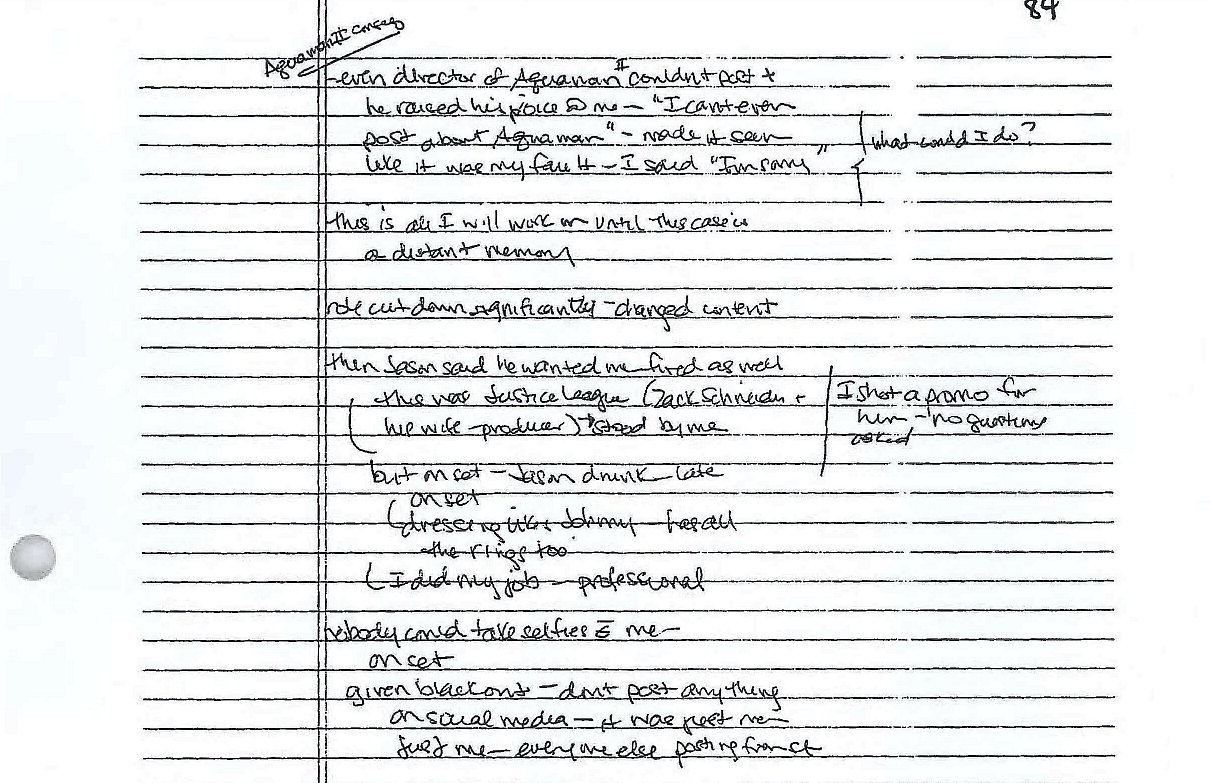 84
Aquaman II conseq
- even director of Aquaman II couldn't post +
he raised his voice @ me - "I can't even
post about Aquaman" - made it seem
like it was my fault - I said "I'm sorry"
what could I do?
this is all I will work on until this case is
a distant memory
role cut down significantly - changed content
then Jason said he wanted me fired as well
this was Justice League (Zack Schneider +
his wife - producer) → stood by me
I shot a promo for
him - no questions
asked
but on set - Jason drunk - late
on set
dressing like Johnny - has all
the rings too
I did my job - professional
nobody could take selfies c̄ me -
on set
given blackout - don't post anything
on social media - it was just me -
just me - everyone else posting from